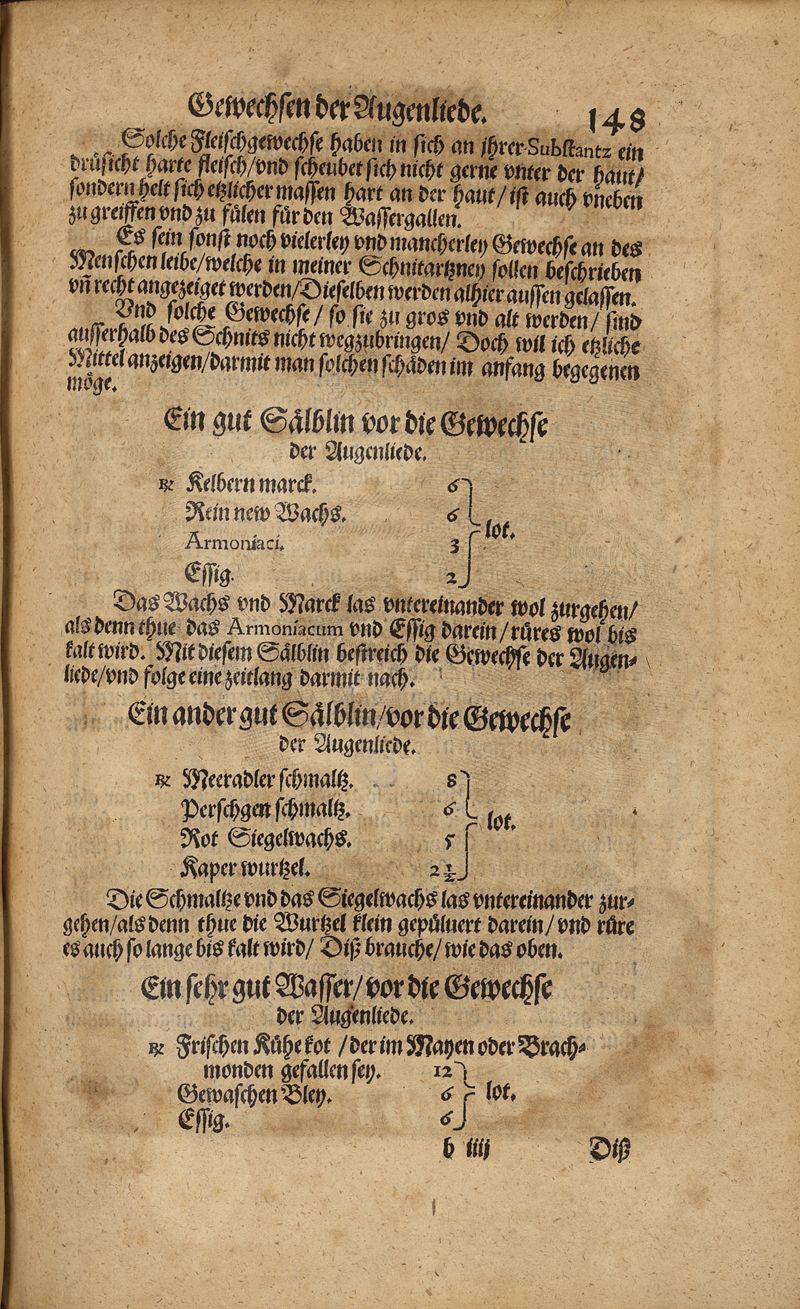 Gewechsen der Augenliede. 148
Solche Fleischgewechse haben in sich an ihrer Substantz ein
drüsicht harte fleisch/vnd scheubet sich nicht gerne vnter der haut/
sondern helt sich etzlicher massen hart an der haut/ist auch vneben
zu greiffen vnd zu fülen für den Wassergallen.
Es sein sonst noch vielerley vnd mancherley Gewechse an des
Menschen leibe/welche in meiner Schnitartzney sollen beschrieben
vñ recht angezeiget werden/Dieselben werden alhier aussen gelassen.
Vnd solche Gewechse/ so sie zu gros vnd alt werden/ sind
ausserhalb des Schnits nicht wegzubringen/ Doch wil ich etzliche
Mittel anzeigen/darmit man solchen schäden im anfang begegenen
möge.
Ein gut Sälblin vor die Gewechse
der Augenliede.
℞ Kelbern marck. 6
Rein new Wachs. 6
lot.
Armoniaci. 3
Essig. 2
Das Wachs vnd Marck las vntereinander wol zurgehen/
als denn thue das Armoniacum vnd Essig darein/rüres wol bis
kalt wird. Mit diesem Sälblin bestreich die Gewechse der Augen-
liede/vnd folge eine zeitlang darmit nach.
Ein ander gut Sälblin/vor die Gewechse
der Augenliede.
℞ Meeradler schmaltz. 8
Perschgen schmaltz. 6
lot.
Rot Siegelwachs. 5
Kaper wurtzel. 2½
Die Schmaltze vnd das Siegelwachs las vntereinander zur-
gehen/als denn thue die Wurtzel klein gepüluert darein/vnd rüre
es auch so lange bis kalt wird/ Diß brauche/wie das oben.
Ein sehr gut Wasser/vor die Gewechse
der Augenliede.
℞ Frischen Kühekot /der im Mayen oder Brach-
monden gefallen sey. 12
Gewaschen Bley. 6 lot.
Essig. 6
b iiij Diß